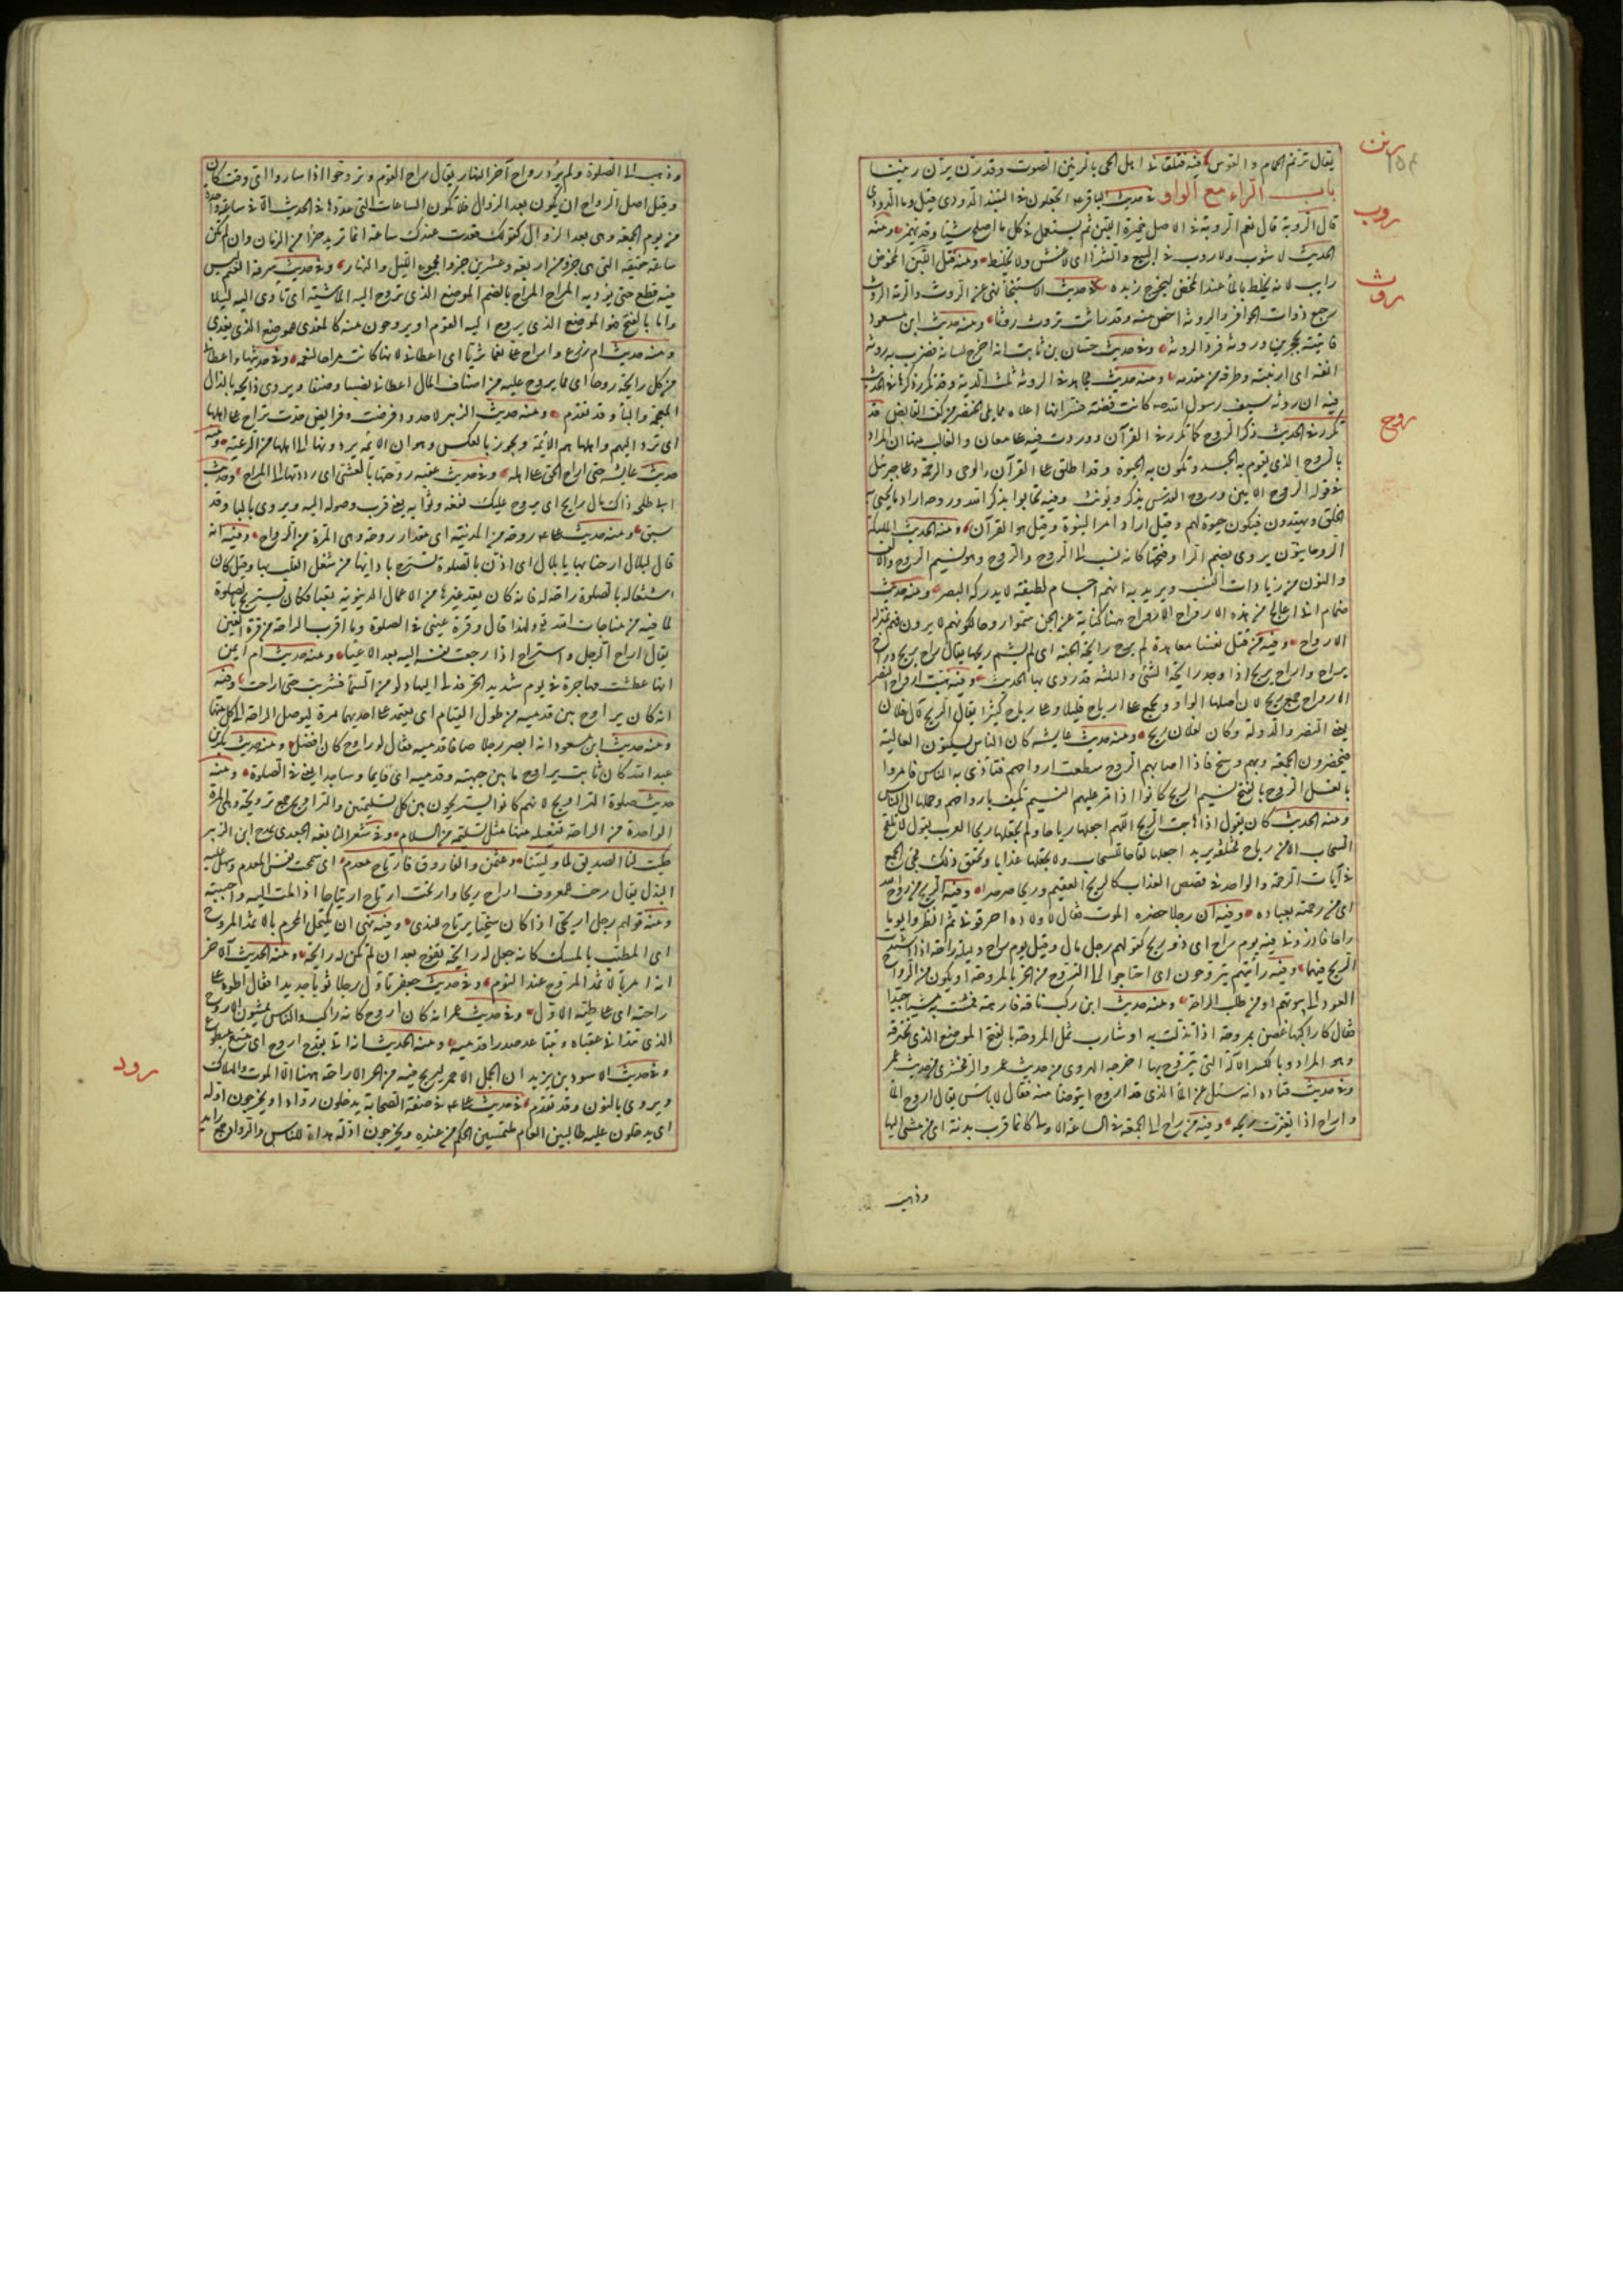 رنن
يقال ترنم الحمام والقوس فيه فتلقانى اهل الحى بالرنين الصوت وقد رن يرن رنينا
باب الراء مع الواو فى حديث الباقر اتجعلون فى النبيذ الدردى قيل وما الدردى
روب
قال الروبة قال نعم الروبة فى الاصل خميرة اللبن ثم يستعمل فى كل ما اصلح شيئا وقد تهمز ومنه
الحديث لا شوب ولا روب فى البيع والشرا اى لا غش ولا تخليط ومنه قيل للبن الممخوض
روث
رايب لانه يخلط بالماء عند المخض ليخرج زبده فى حديث الاستنجا نهى عن الروث والرمة الروث
رجيع ذوات الحوافر والروثة اخص منه وقد راثت تروث روثا ومنه حديث ابن مسعود
فاتيته بحجرين وروثة فرد الروثة وفى حديث حسان بن ثابت انه اخرج لسانه فضرب به روثة
انفه اى ارنبته وطرفه من مقدمه ومنه حديث مجاهد فى الروثة ثلث الدية وقد تكرر ذكرها فى الحديث
فيه ان روثة سيف رسول الله كانت فضة فسر انها اعلاه مما يلى الخنصر من كف القابض قد
روح
تكرر فى الحديث ذكر الروح كما تكرر فى القرآن ووردت فيه على معان والغالب منها ان المراد
بالروح الذى يقوم به الجسد وتكون به الحيوة وقد اطلق على القرآن والوحى والرحمة وعلى جبرئيل
فى قوله الروح الامين وروح القدس يذكر ويؤنث وفيه تحابوا بذكر الله وروحه اراد ما يحيى به
الخلق ويهتدون فيكون حيوة لهم وقيل اراد امر النبوة وقيل هو القرآن ومنه الحديث الملئكة
الروحانيون يروى بضم الرا وفتحها كانه نسب الى الروح والروح وهو نسيم الروح والالف
والنون من زيادات النسب ويريد به انهم اجسام لطيفة لا يدركه البصر ومنه حديث
ضمام انى اعالج من هذه الارواح الارواح ههنا كناية عن الجن سموا روحا لكونهم لا يرون فهم بمنزلة
الارواح وفيه من قتل نفسا معاهدة لم يرح رايحة الجنة اى لم يشم ريحها يقال راح يريح وراح
يراح واراح يريح اذا وجد رايحة الشئ والثلثة قد روى بها الحديث وفيه هبت ارواح النصر
الارواح جمع ريح لان اصلها الواو ويجمع على ارياح قليلا وعلى رياح كثيرا يقال الريح لآل فلان
يعنى النصر والدولة وكان لفلان ريح ومنه حديث عايشة كان الناس يسكنون العالية
فيحضرون الجمعة وبهم وسخ فاذا اصابهم الروح سطعت ارواحهم فتاذى به الناس فامروا
بالغسل الروح بالفتح نسيم الريح كانوا اذا مر عليهم النسيم تكيف بارواحهم وحملها الى الناس
ومنه الحديث كان يقول اذا هاجت الريح اللهم اجعلها رياحا ولم تجعلها ريحا العرب يقول لا تلقح
السحاب الا من رياح مختلفة يريد اجعلها لقاحا للسحاب ولا تجعلها عذابا ويحقق ذلك مجئ الجمع
فى آيات الرحمة والواحد فى قصص العذاب كالريح العقيم وريحا صرصرا وفيه الريح من روح الله
اى من رحمته بعباده وفيه ان رجلا حضره الموت فقال لاولاده احرقونى ثم انظروا يوما
راحا فاذرونى فيه يوم راح اى ذو ريح كقولهم رجل مال وقيل يوم راح وليلة راحة اذا اشتدت
الريح فيهما وفيه رأيتهم يتروحون اى احتاجوا الى التروح من الحر بالمروحة او يكون من الرواح
العود الى بيوتهم او من طلب الراحة ومنه حديث ابن ركب ناقة فارهة فمشت به مشيا جيدا
فقال كأن راكبها غصن بمروحة اذا تدلت به او شارب ثمل المروحة بالفتح الموضع الذى تخترقه
وهو المراد وبالكسر الآلة التى يتروح بها اخرجه الهروى من حديث عمر والزمخشرى من حديث ابن عمر
وفى حديث قتاده انه سئل عن الماء الذى قد اروح ايتوضأ منه فقال لا باس يقال اروح الماء
واراح اذا تغيرت ريحه وفيه من راح الى الجمعة فى الساعة الاولى كانما قرب بدنة اى من مشى اليها
وذهب
وذهب الى الصلوة ولم يرد رواح آخر النهار يقال راح القوم وتروحوا اذا ساروا اى وقت كان
وقيل اصل الرواح ان يكون بعد الزوال فلا تكون الساعات التى عددها فى الحديث الا فى ساعة واحدة
من يوم الجمعة وهى بعد الزوال كقولك قعدت عندك ساعة انما تريد جزءا من الزمان وان لم يكن
ساعة حقيقة التى هى جزو من اربعة وعشرين جزوا مجموع الليل والنهار وفى حديث سرقة الغنم ليس
فيه قطع حتى يؤويه المراح المراح بالضم الموضع الذى تروح اليه الماشية اى تاوى اليه ليلا
واما بالفتح فهو الموضع الذى يروح اليه القوم او يروحون منه كالمغدى هو موضع الذى يغدى
ومنه حديث ام زرع واراح على نعما ثريا اى اعطانى لانها كانت مراحا لنعمه وفى حديثها واعطانى
من كل رايحة زوجا اى مما يروح عليه من اصناف المال اعطانى نصيبا وصنفا ويروى ذابحة بالذال
المعجمة والبا وقد تقدم ومنه حديث الزبير لا حدود فرضت وفرايض حدت تراح على اهلها
اى ترد اليهم واهلها هم الائمة ويجوز بالعكس وهو ان الائمة يردونها الى اهلها من الرعية ومنه
حديث عايشة حتى اراح الحق على اهله وفى حديث عقبة روحتها بالعشى اى رددتها الى المراح وحديث
ابى طلحة ذاك مال رايح اى يروح عليك نفعه وثوابه يعنى قرب وصوله اليه ويروى بالبا وقد
سبق ومنه حديث على روحة من المدينة اى مقدار روحة وهى المرة من الرواح وفيه انه
قال لبلال ارحنا بها يا بلال اى اذن بالصلوة نسترح بادايها من شغل القلب بها وقيل كان
اشتغاله بالصلوة راحة له فانه كان يعد غيرها من الاعمال الدنيوية تعبا فكان يستريح بالصلوة
لما فيه من مناجات الله ولهذا قال وقرة عينى فى الصلوة وما اقرب الراحة من قرة العين
يقال اراح الرجل واستراح اذا رجعت نفسه اليه بعد الاعيا ومنه حديث ام ايمن
انها عطشت مهاجرة فى يوم شديد الحر فدلى اليها دلو من السماء فشربت حتى اراحت وفيه
انه كان يراوح بين قدميه من طول القيام اى يعتمد على احديهما مرة ليوصل الراحة الى كل منهما
ومنه حديث ابن مسعود انه ابصر رجلا صافا قدميه فقال لو راوح كان افضل ومنه حديث بكر بن
عبد الله كان ثابت يراوح ما بين جبهته وقدميه اى قايما وساجدا يعنى فى الصلوة ومنه
حديث صلوة التراويح لانهم كانوا يستريحون بين كل تسليمتين والتراويح جمع ترويحة وهى المرة
الواحدة من الراحة تفعيلة منها مثل تسليمة من السلام وفى شعر النابغة الجعدى يمدح ابن الزبير
حكيت لنا الصديق لما وليتنا وعثمن والفاروق فارتاح معدم اى سمحت نفس المعدم وسهل عليه
البذل يقال رحت لمعروف اراح ريحا وارتحت ارتاح ارتياحا اذا ملت اليه واحببته
ومنه قولهم رجل اريحى اذا كان سخيا يرتاح للندى وفيه نهى ان يكتحل المحرم بالاثمد المروح
اى المطيب بالمسك كانه جعل له رايحة تفوح بعد ان لم تكن له رايحة ومنه الحديث الآخر
انه امر بالاثمد المروح عند النوم وفى حديث جعفر ناول رجلا ثوبا جديدا فقال اطوه على
راحته اى على طيه الاول وفى حديث عمر انه كان اروح كانه راكب والناس يمشون الاروح
الذى تتدانى عقباه وتتباعد صدرا قدميه ومنه الحديث انه اتى بقدح اروح اى متسع مبطوح
وفى حديث الاسود بن يزيد ان الجمل الاحمر ليريح فيه من الحر الاراحة ههنا الموت والهلاك
رود
ويروى بالنون وقد تقدم فى حديث على فى صفة الصحابة يدخلون روادا ويخرجون ادلة
اى يدخلون عليه طالبين العلم ملتمسين الحكم من عنده ويخرجون ادلة هداة للناس والرواد جمع رايد